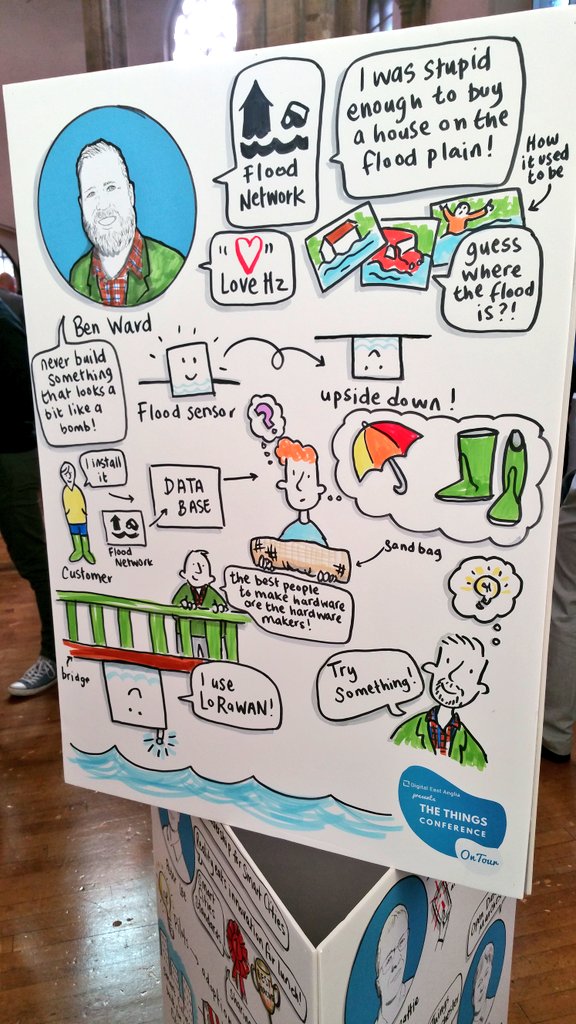 I was stupid
enough to buy
a house on the
flood plain!
How
it used
to be
Flood
Network
"♡"
Love Hz
guess
where
the flood
is?!
Ben Ward
never build
something
that looks a
bit like a
bomb!
Flood sensor
upside down!
?
I install
it
DATA
BASE
Flood
Network
Customer
sandbag
the best people
to make hardware
are the hardware
makers!
bridge
I use
LoRaWAN!
Try
Something!
Digital East Anglia
presents
THE THINGS
CONFERENCE
On Tour